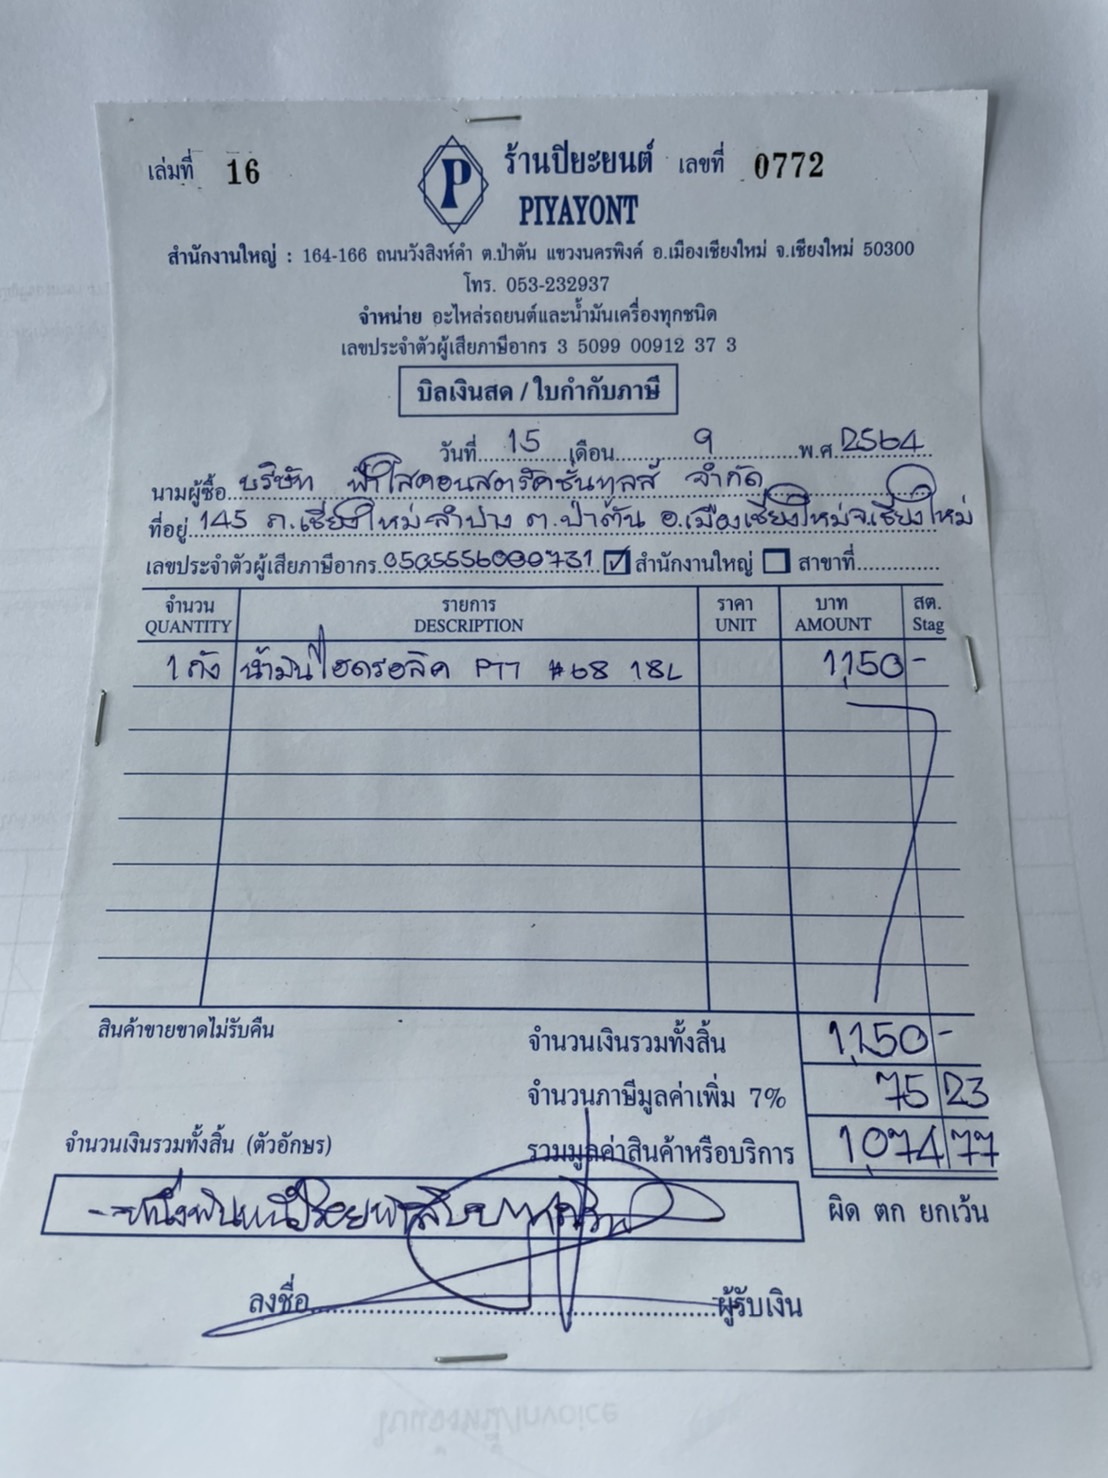 เล่มที่ 16 ร้านปิยะยนต์ เลขที่ 0772
P PIYAYONT
สำนักงานใหญ่ : 164-166 ถนนวังสิงห์คำ ต.ป่าตัน แขวงนครพิงค์ อ.เมืองเชียงใหม่ จ.เชียงใหม่ 50300
โทร. 053-232937
จำหน่าย อะไหล่รถยนต์และน้ำมันเครื่องทุกชนิด
เลขประจำตัวผู้เสียภาษีอากร 3 5099 00912 37 3
บิลเงินสด / ใบกำกับภาษี
วันที่ 15 เดือน 9 พ.ศ. 2564
นามผู้ซื้อ บริษัท ฟ้าใสคอนสตรัคชั่นทูลส์ จำกัด
ที่อยู่ 145 ถ.เชียงใหม่-ลำปาง ต.ป่าตัน อ.เมืองเชียงใหม่ จ.เชียงใหม่
เลขประจำตัวผู้เสียภาษีอากร 0505556000731 ☑ สำนักงานใหญ่ ☐ สาขาที่
จำนวน รายการ ราคา บาท สต.
QUANTITY DESCRIPTION UNIT AMOUNT Stag
1 ถัง น้ำมันไฮดรอลิค PTT #68 18L 1,150 -
สินค้าขายขาดไม่รับคืน จำนวนเงินรวมทั้งสิ้น 1,150 -
จำนวนภาษีมูลค่าเพิ่ม 7% 75 23
จำนวนเงินรวมทั้งสิ้น (ตัวอักษร) รวมมูลค่าสินค้าหรือบริการ 1,074 77
-หนึ่งพันหนึ่งร้อยห้าสิบบาทถ้วน ผิด ตก ยกเว้น
ลงชื่อ ผู้รับเงิน